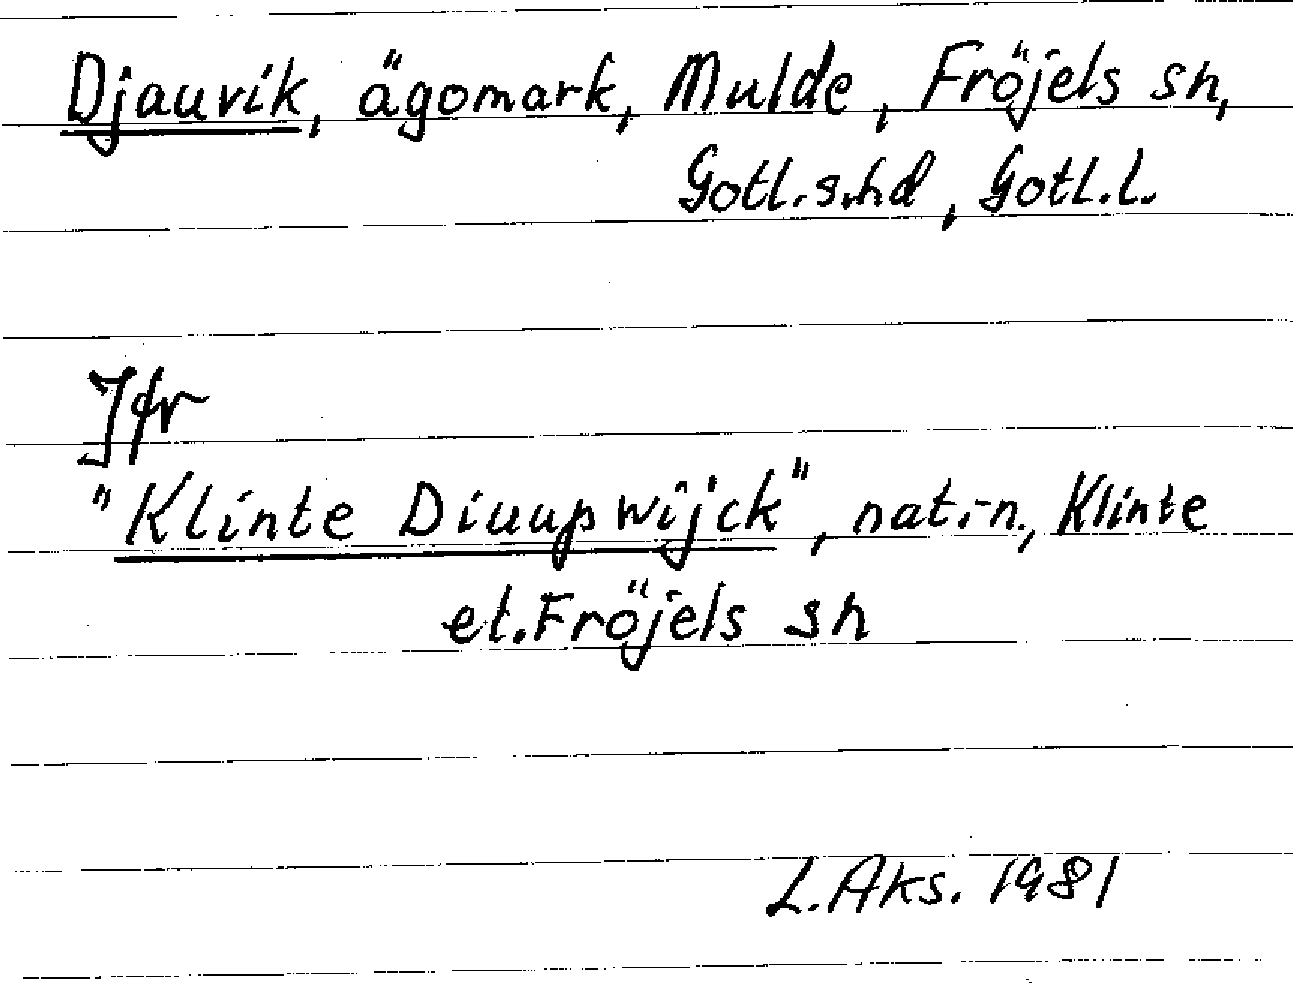 Djauvik, ägomark, Mulde, Fröjels sn,
Gotl.s.hd, Gotl.l.
Jfr
"Klinte Diuupwijck", nat.-n., Klinte
et.Fröjels sn
L.Aks. 1981